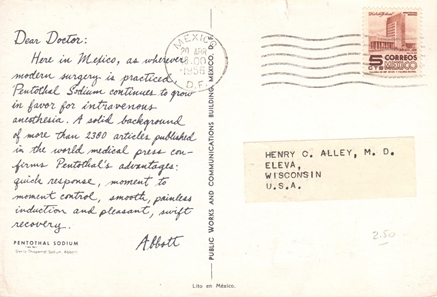 Dear Doctor:
Here in Mejico, as wherever
modern surgery is practiced,
Pentothal Sodium continues to grow
in favor for intravenous
anesthesia. A solid background
of more than 2300 articles published
in the world medical press con-
firms Pentothal's advantages:
quick response, moment to
moment control, smooth, painless
induction and pleasant, swift
recovery.
Abbott
PENTOTHAL SODIUM
PUBLIC WORKS AND COMMUNICATIONS BUILDING, MEXICO D.F.
MEXICO
20 ABR
1956
D.F.
5
CTS
CORREOS
MEXICO
HENRY C. ALLEY, M. D.
ELEVA,
WISCONSIN
U.S.A.
2.50
Lito en México.